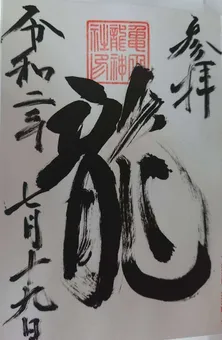 参拝
龍神
社印
龍
令和二年 七月十九日